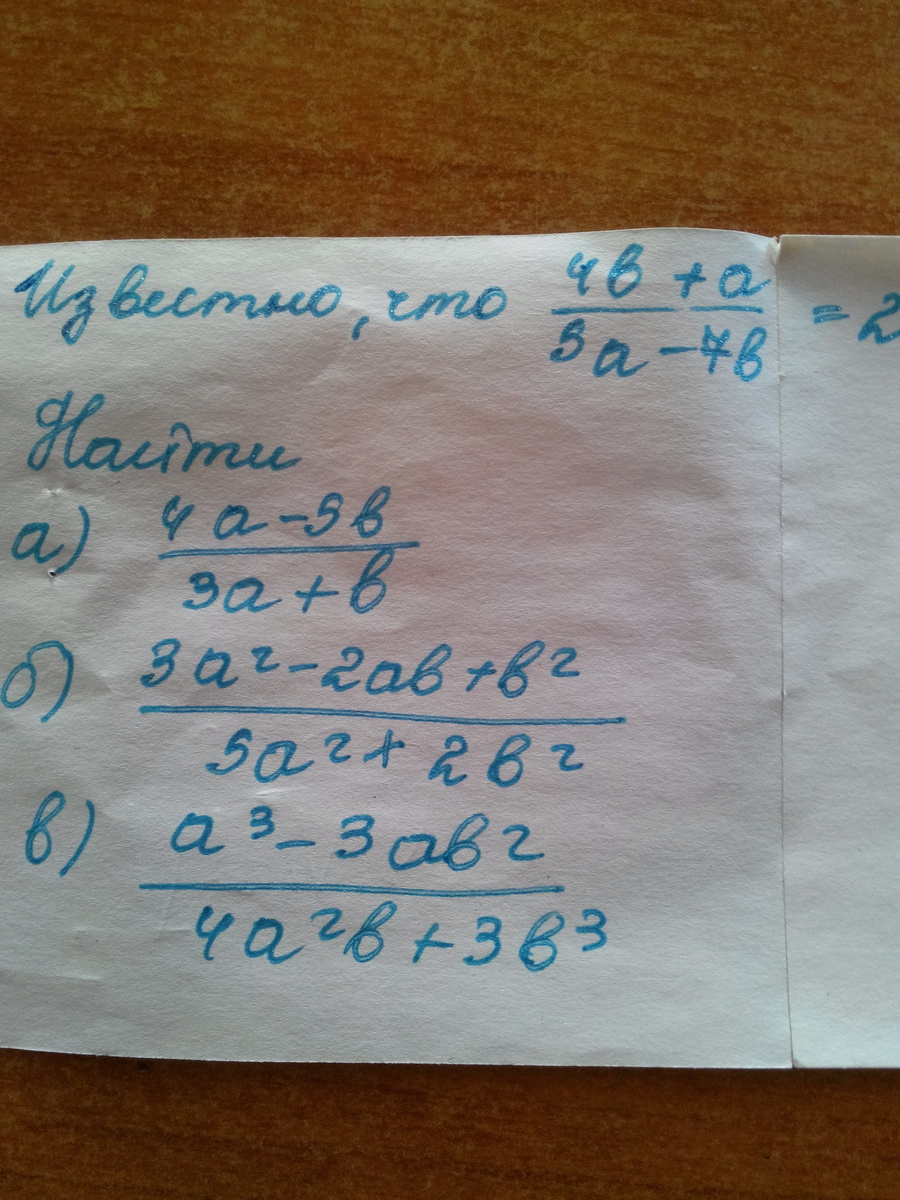 Известно, что (4в + а)/(5а - 7в) = 2
Найти
а) (4а - 5в)/(3а + в)
б) (3а² - 2ав + в²)/(5а² + 2в²)
в) (а³ - 3ав²)/(4а²в + 3в³)